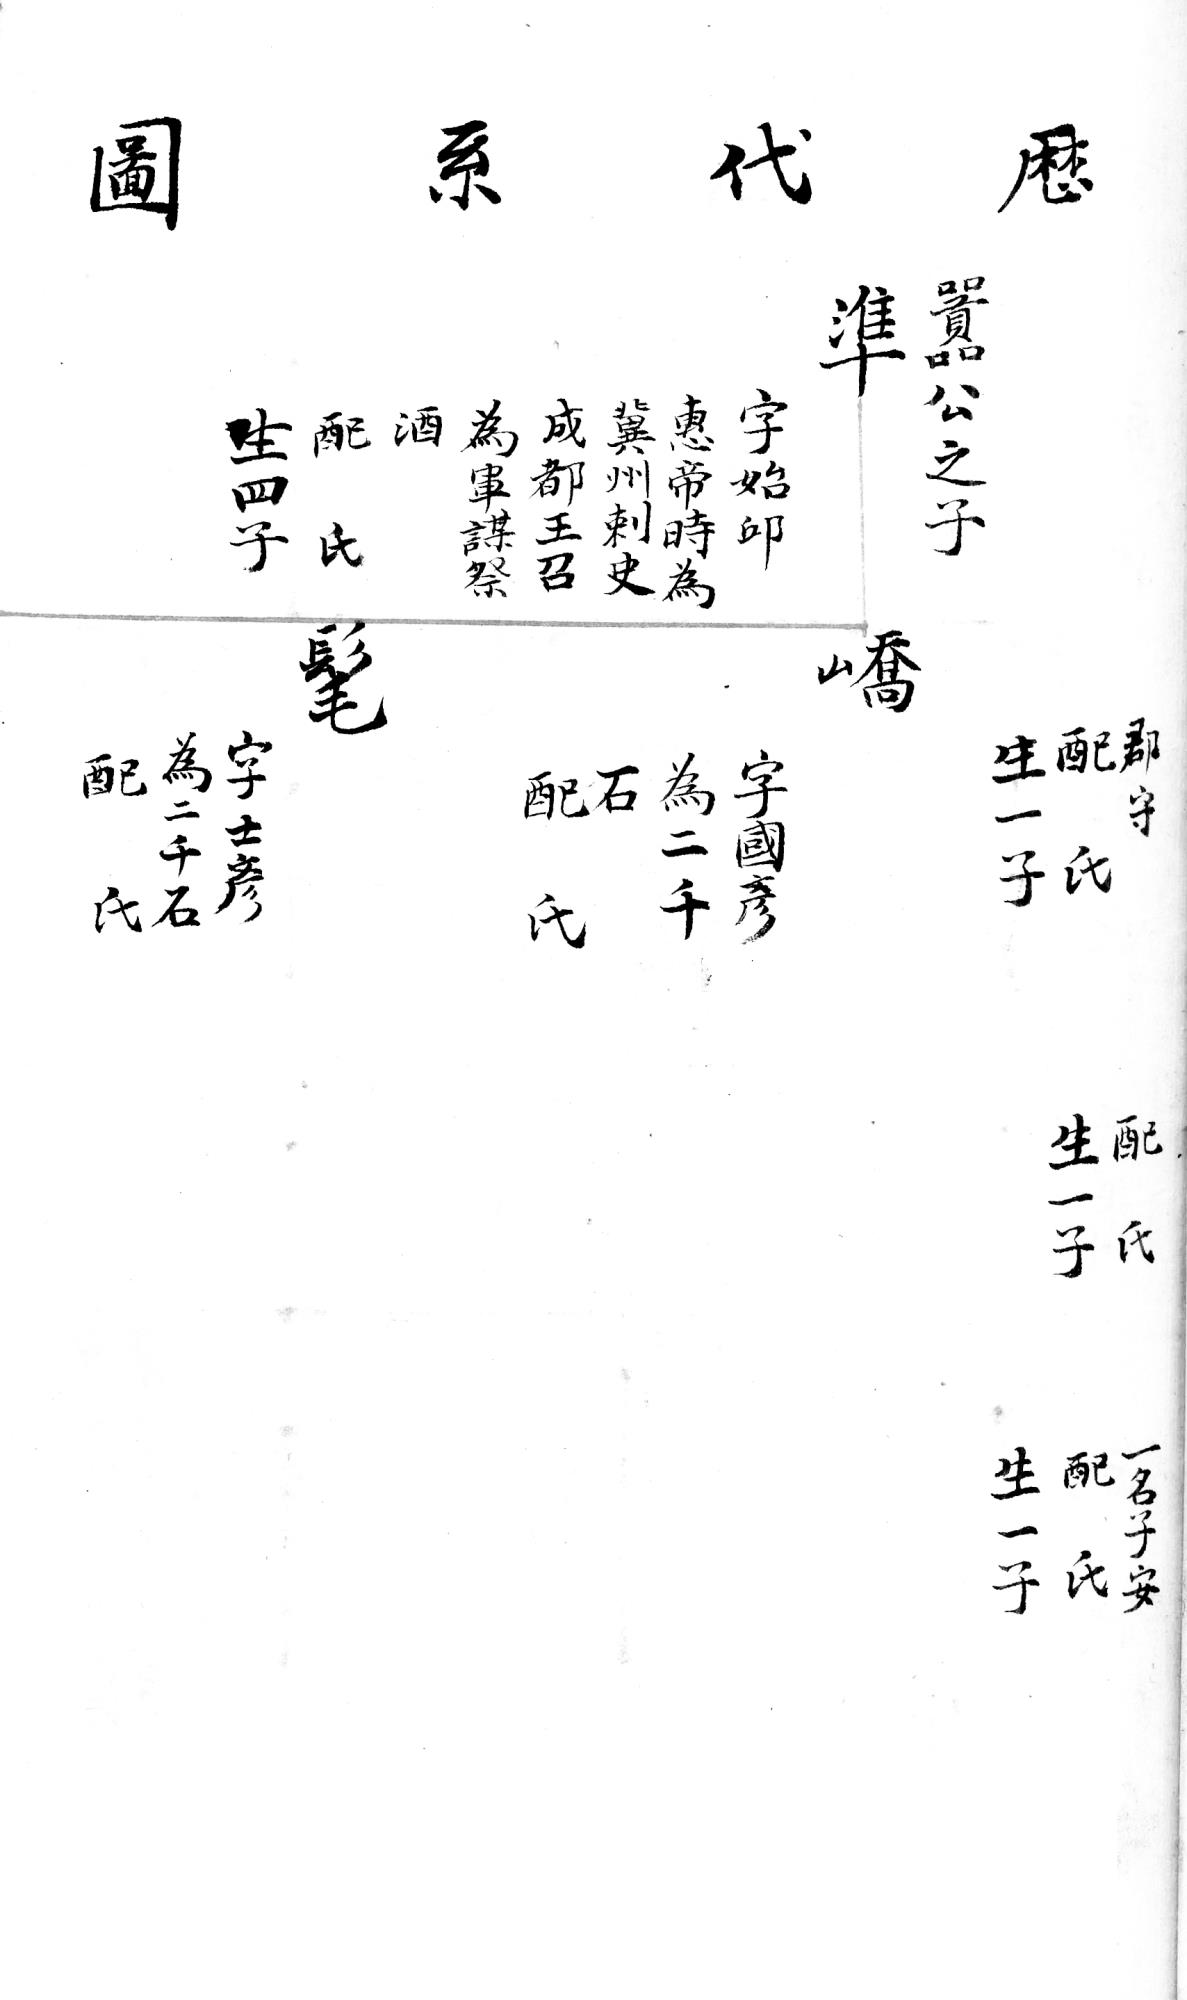 歷代系圖
郡守
配 氏
生一子
配 氏
生一子
一名子安
配 氏
生一子
嚻公之子
準
字始邱
惠帝時為
冀州刺史
成都王召
為軍謀祭
酒
配 氏
生四子
嶠
字國彥
為二千
石
配 氏
髦
字士彥
為二千石
配 氏